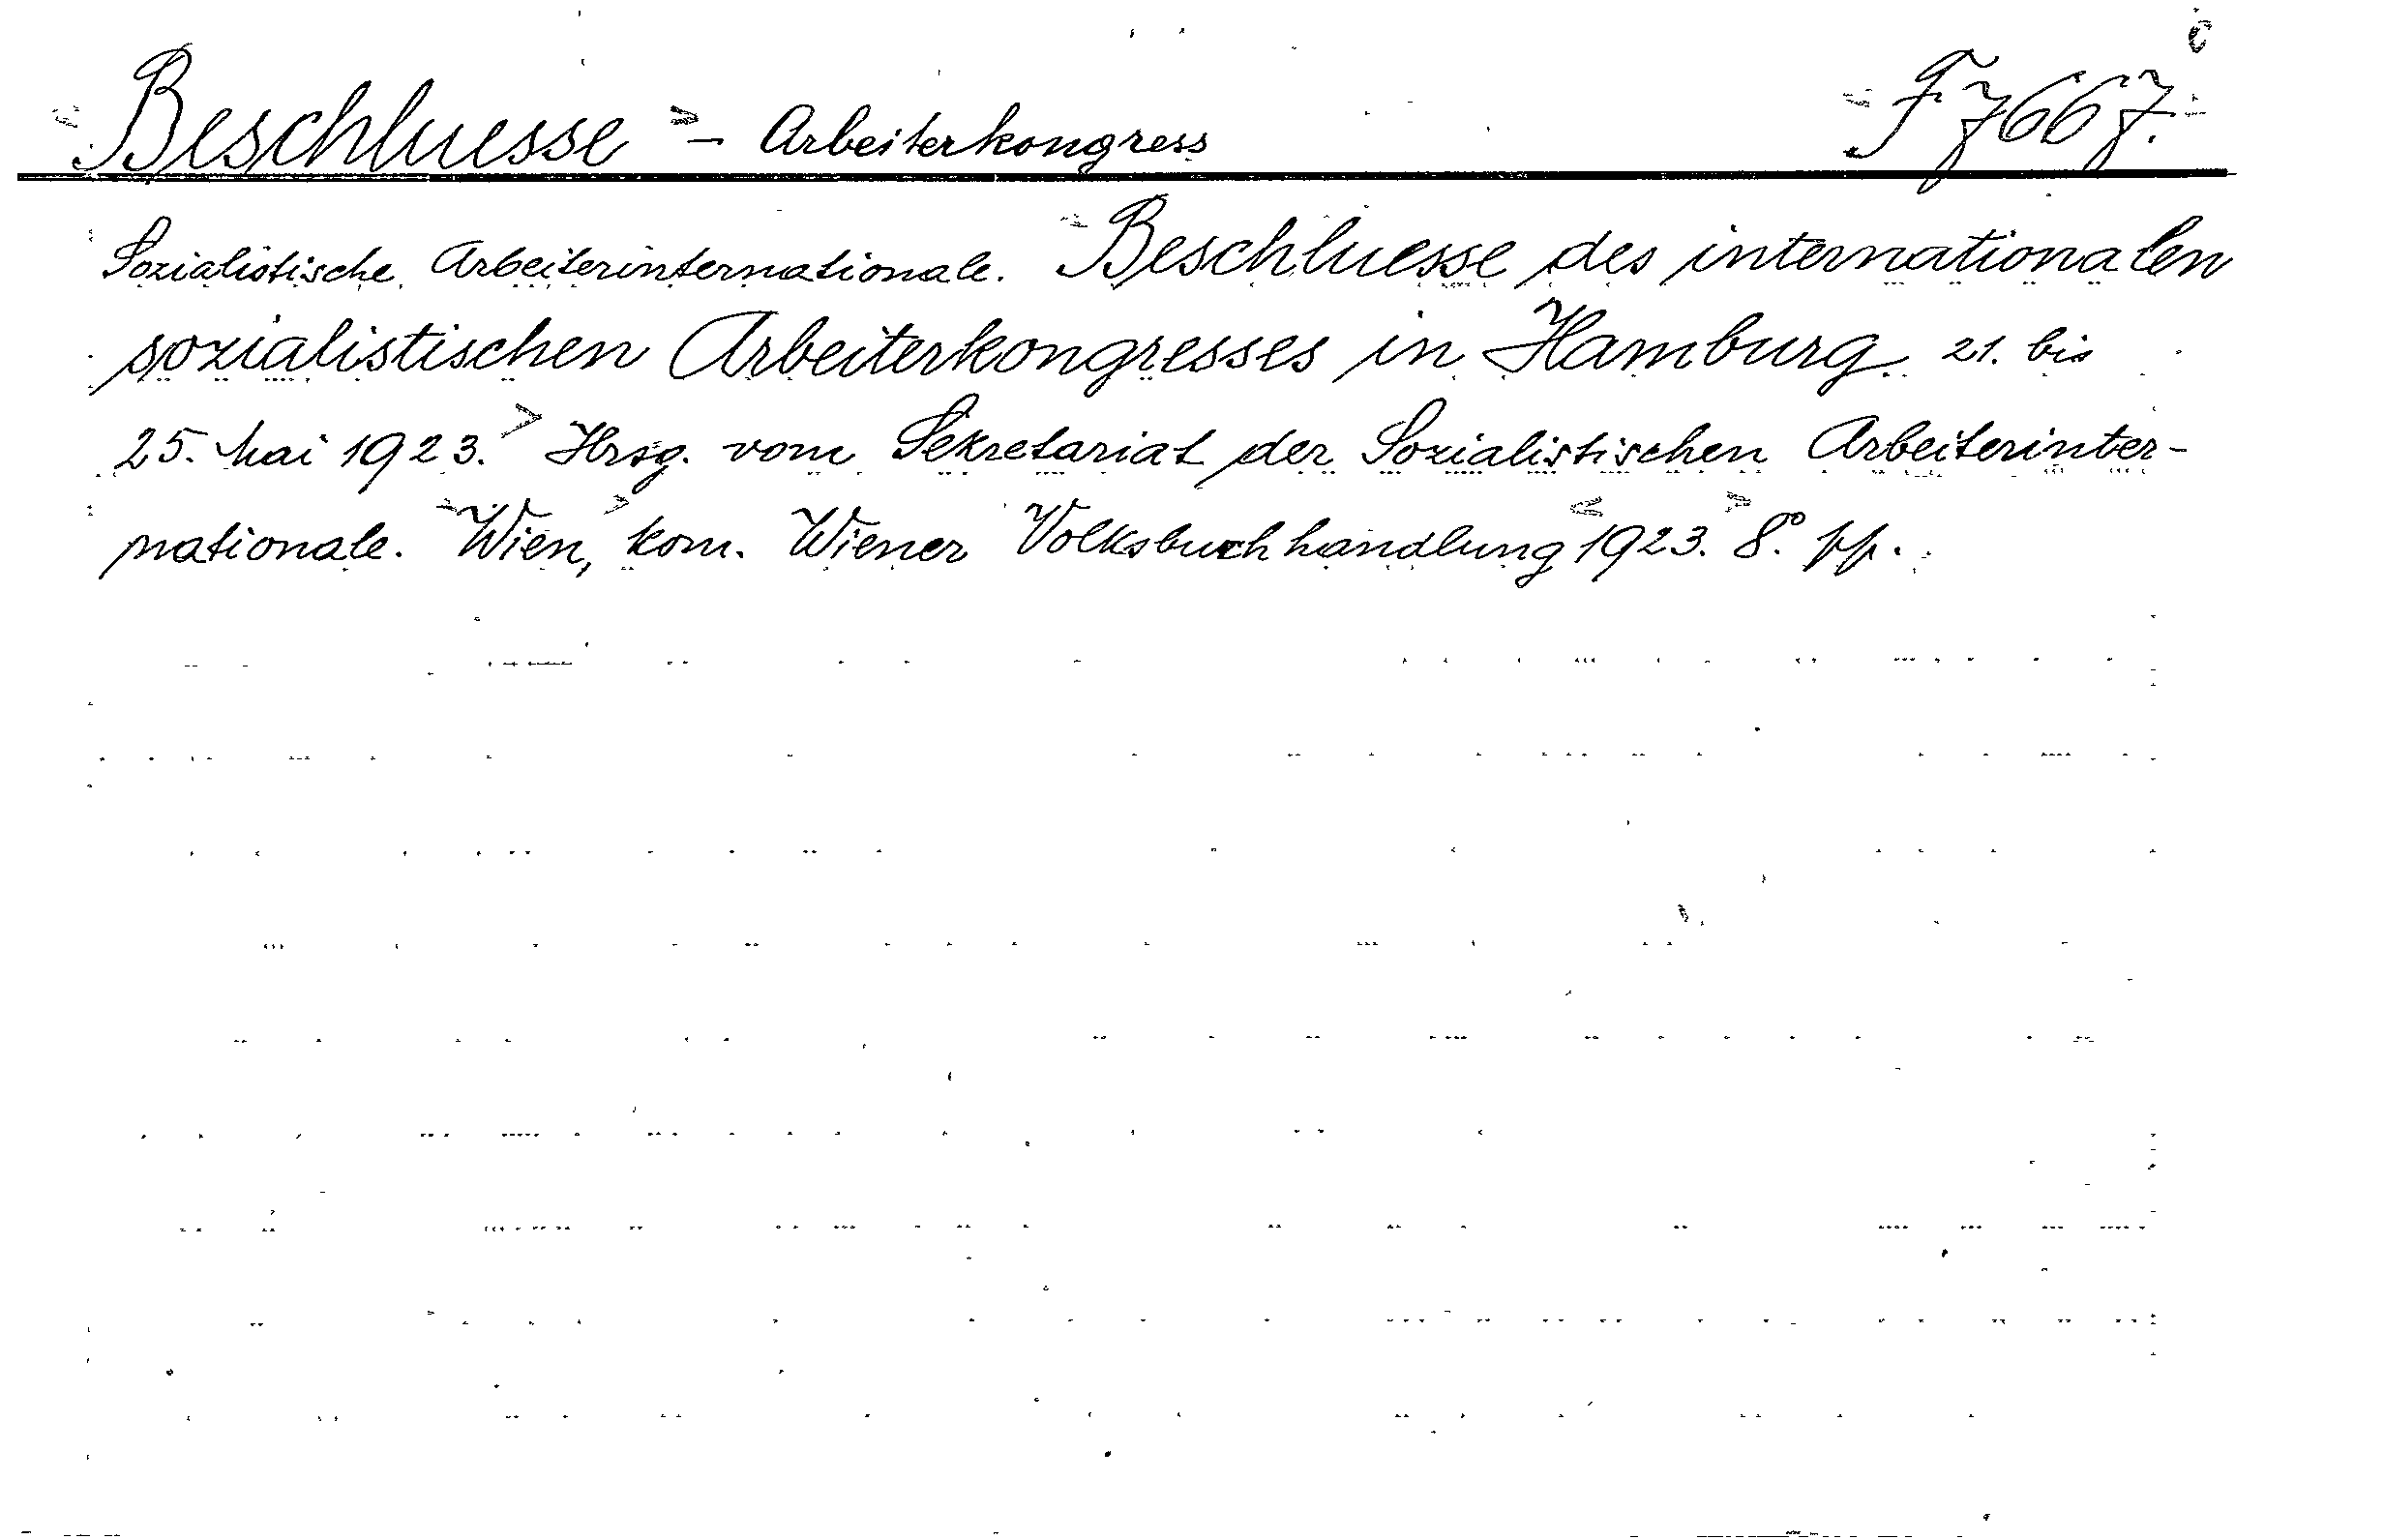 Beschluesse - Arbeiterkongress F 7667.
Sozialistische Arbeiterinternationale. Beschluesse des internationalen
sozialistischen Arbeiterkongresses in Hamburg 21. bis
25. Mai 1923. Hrsg. vom Sekretariat der Sozialistischen Arbeiterinter-
nationale. Wien, kom. Wiener Volksbuchhandlung 1923. 8° pp.